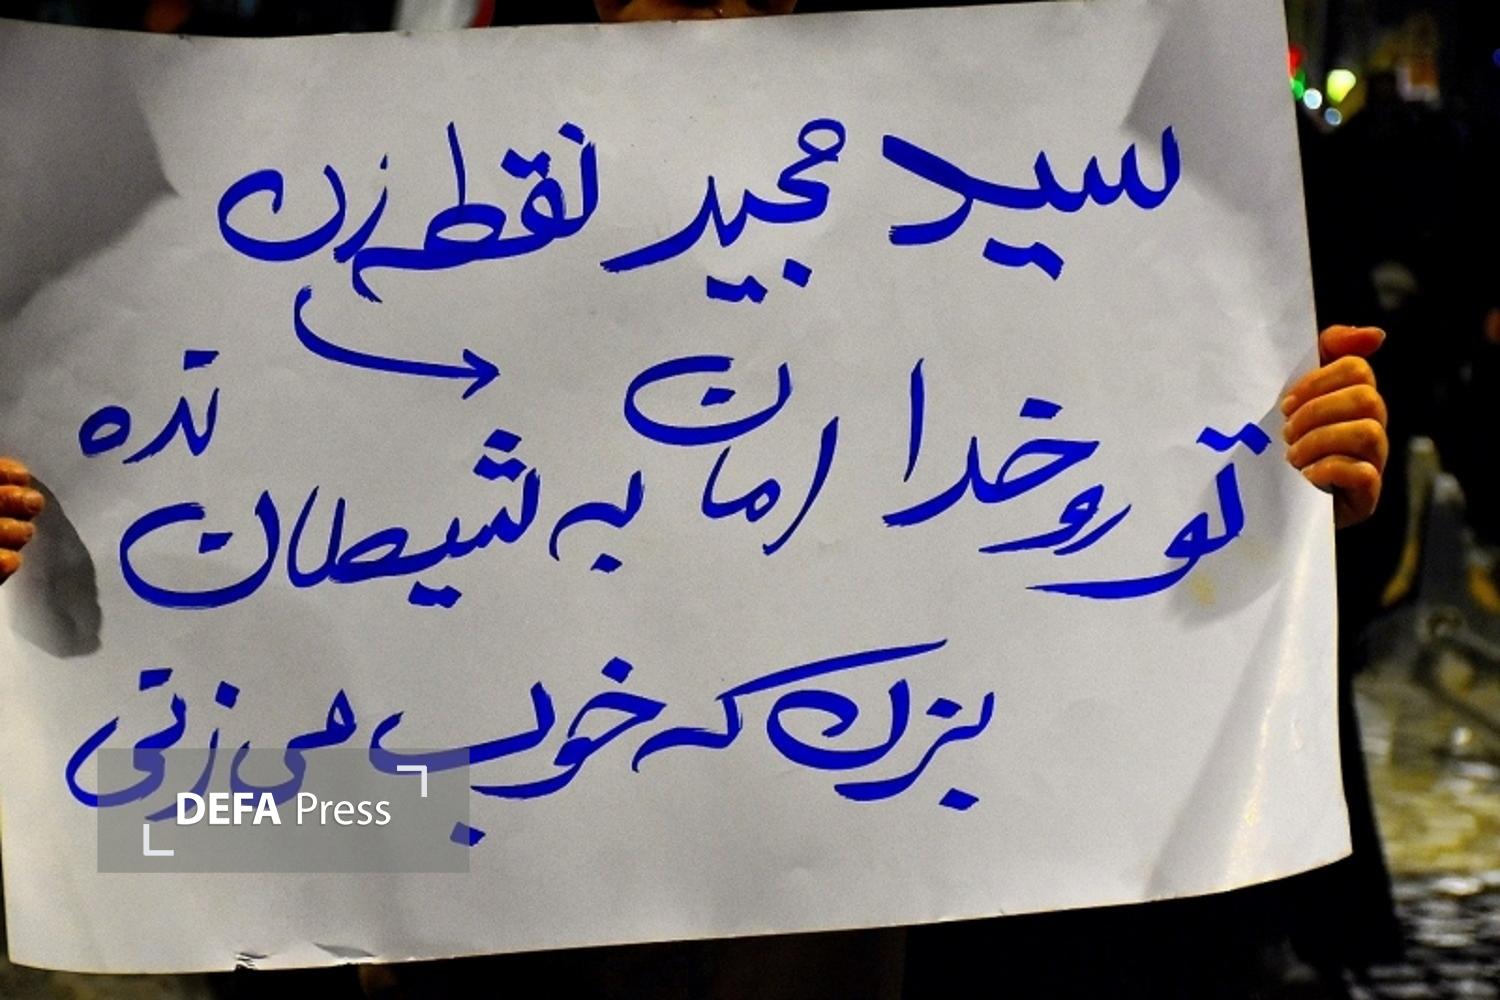 سید مجید نقطه زن
تو رو خدا امان به شیطان نده
بزن که خوب می زنی
DEFA Press